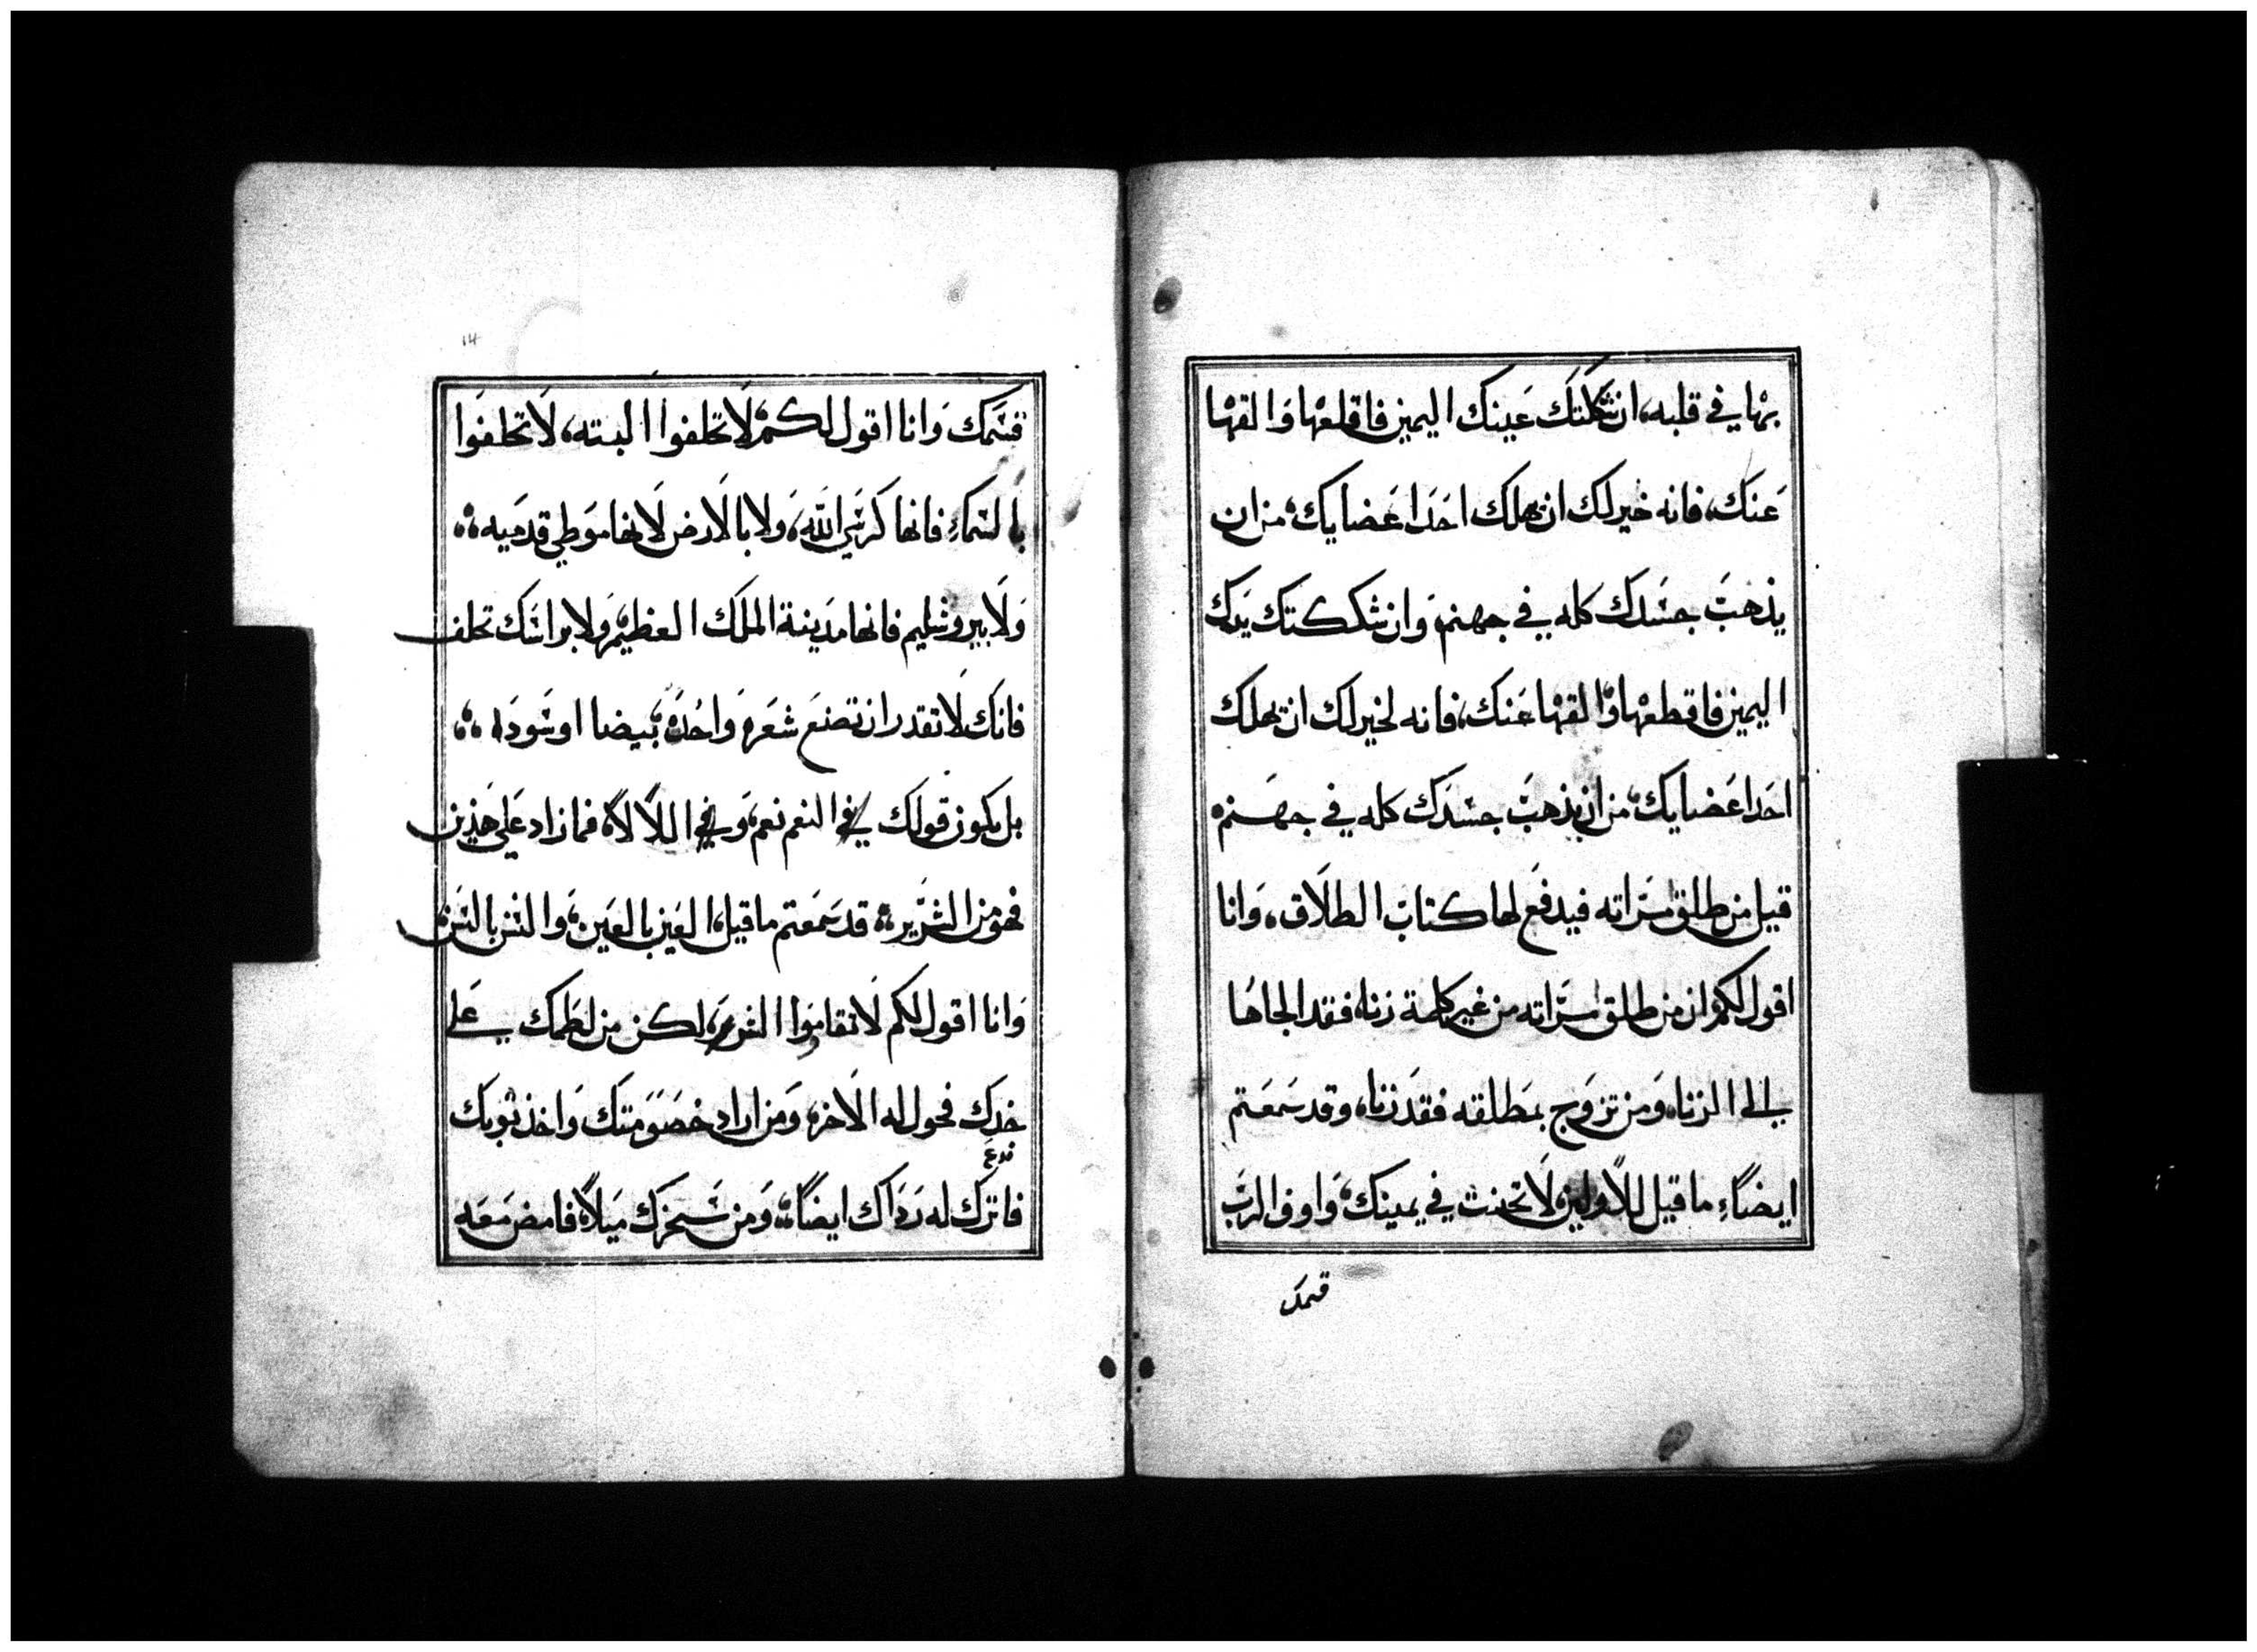 بها في قلبه، ان شككتك عينك اليمين فاقلعها والقها
عنك، فانه خير لك ان تهلك احد اعضايك، من ان
يذهب جسدك كله في جهنم، وان شككتك يدك
اليمين فاقطعها والقها عنك، فانه لخير لك ان تهلك
احد اعضايك، من ان يذهب جسدك كله في جهنم،
قيل من طلق مراته فيدفع لها كتاب الطلاق، وانا
اقول لكم ان من طلق مراته من غير كلمة زناه فقد الجاها
الى الزناه ومن تزوج بمطلقه فقد زناه، وقد سمعتم
ايضاً ما قيل للاولين لا تحنث في يمينك، واوف الرب
قسمك
14
قسمك وانا اقول لكم، لا تحلفوا البته، لا تحلفوا
بالسماء فانها كرسي الله، ولا بالارض لانها موطي قدميه
ولا بيروشليم فانها مدينة الملك العظيم، ولا براسك تحلف
فانك لا تقدر ان تصنع شعره واحده، بيضا او سوداء
بل يكون قولك في النعم نعم، وفي اللا لا، فما زاد على هذين
فهو من الشرير، قد سمعتم ما قيل، العين بالعين، والسن بالسن
وانا اقول لكم لا تقاوموا الشرير، لكن من لطمك على
خدك فحول له الاخر، ومن اراد خصومتك واخذ ثوبك
فاترك له رداك ايضاً، ومن سخرك ميلاً فامض معه